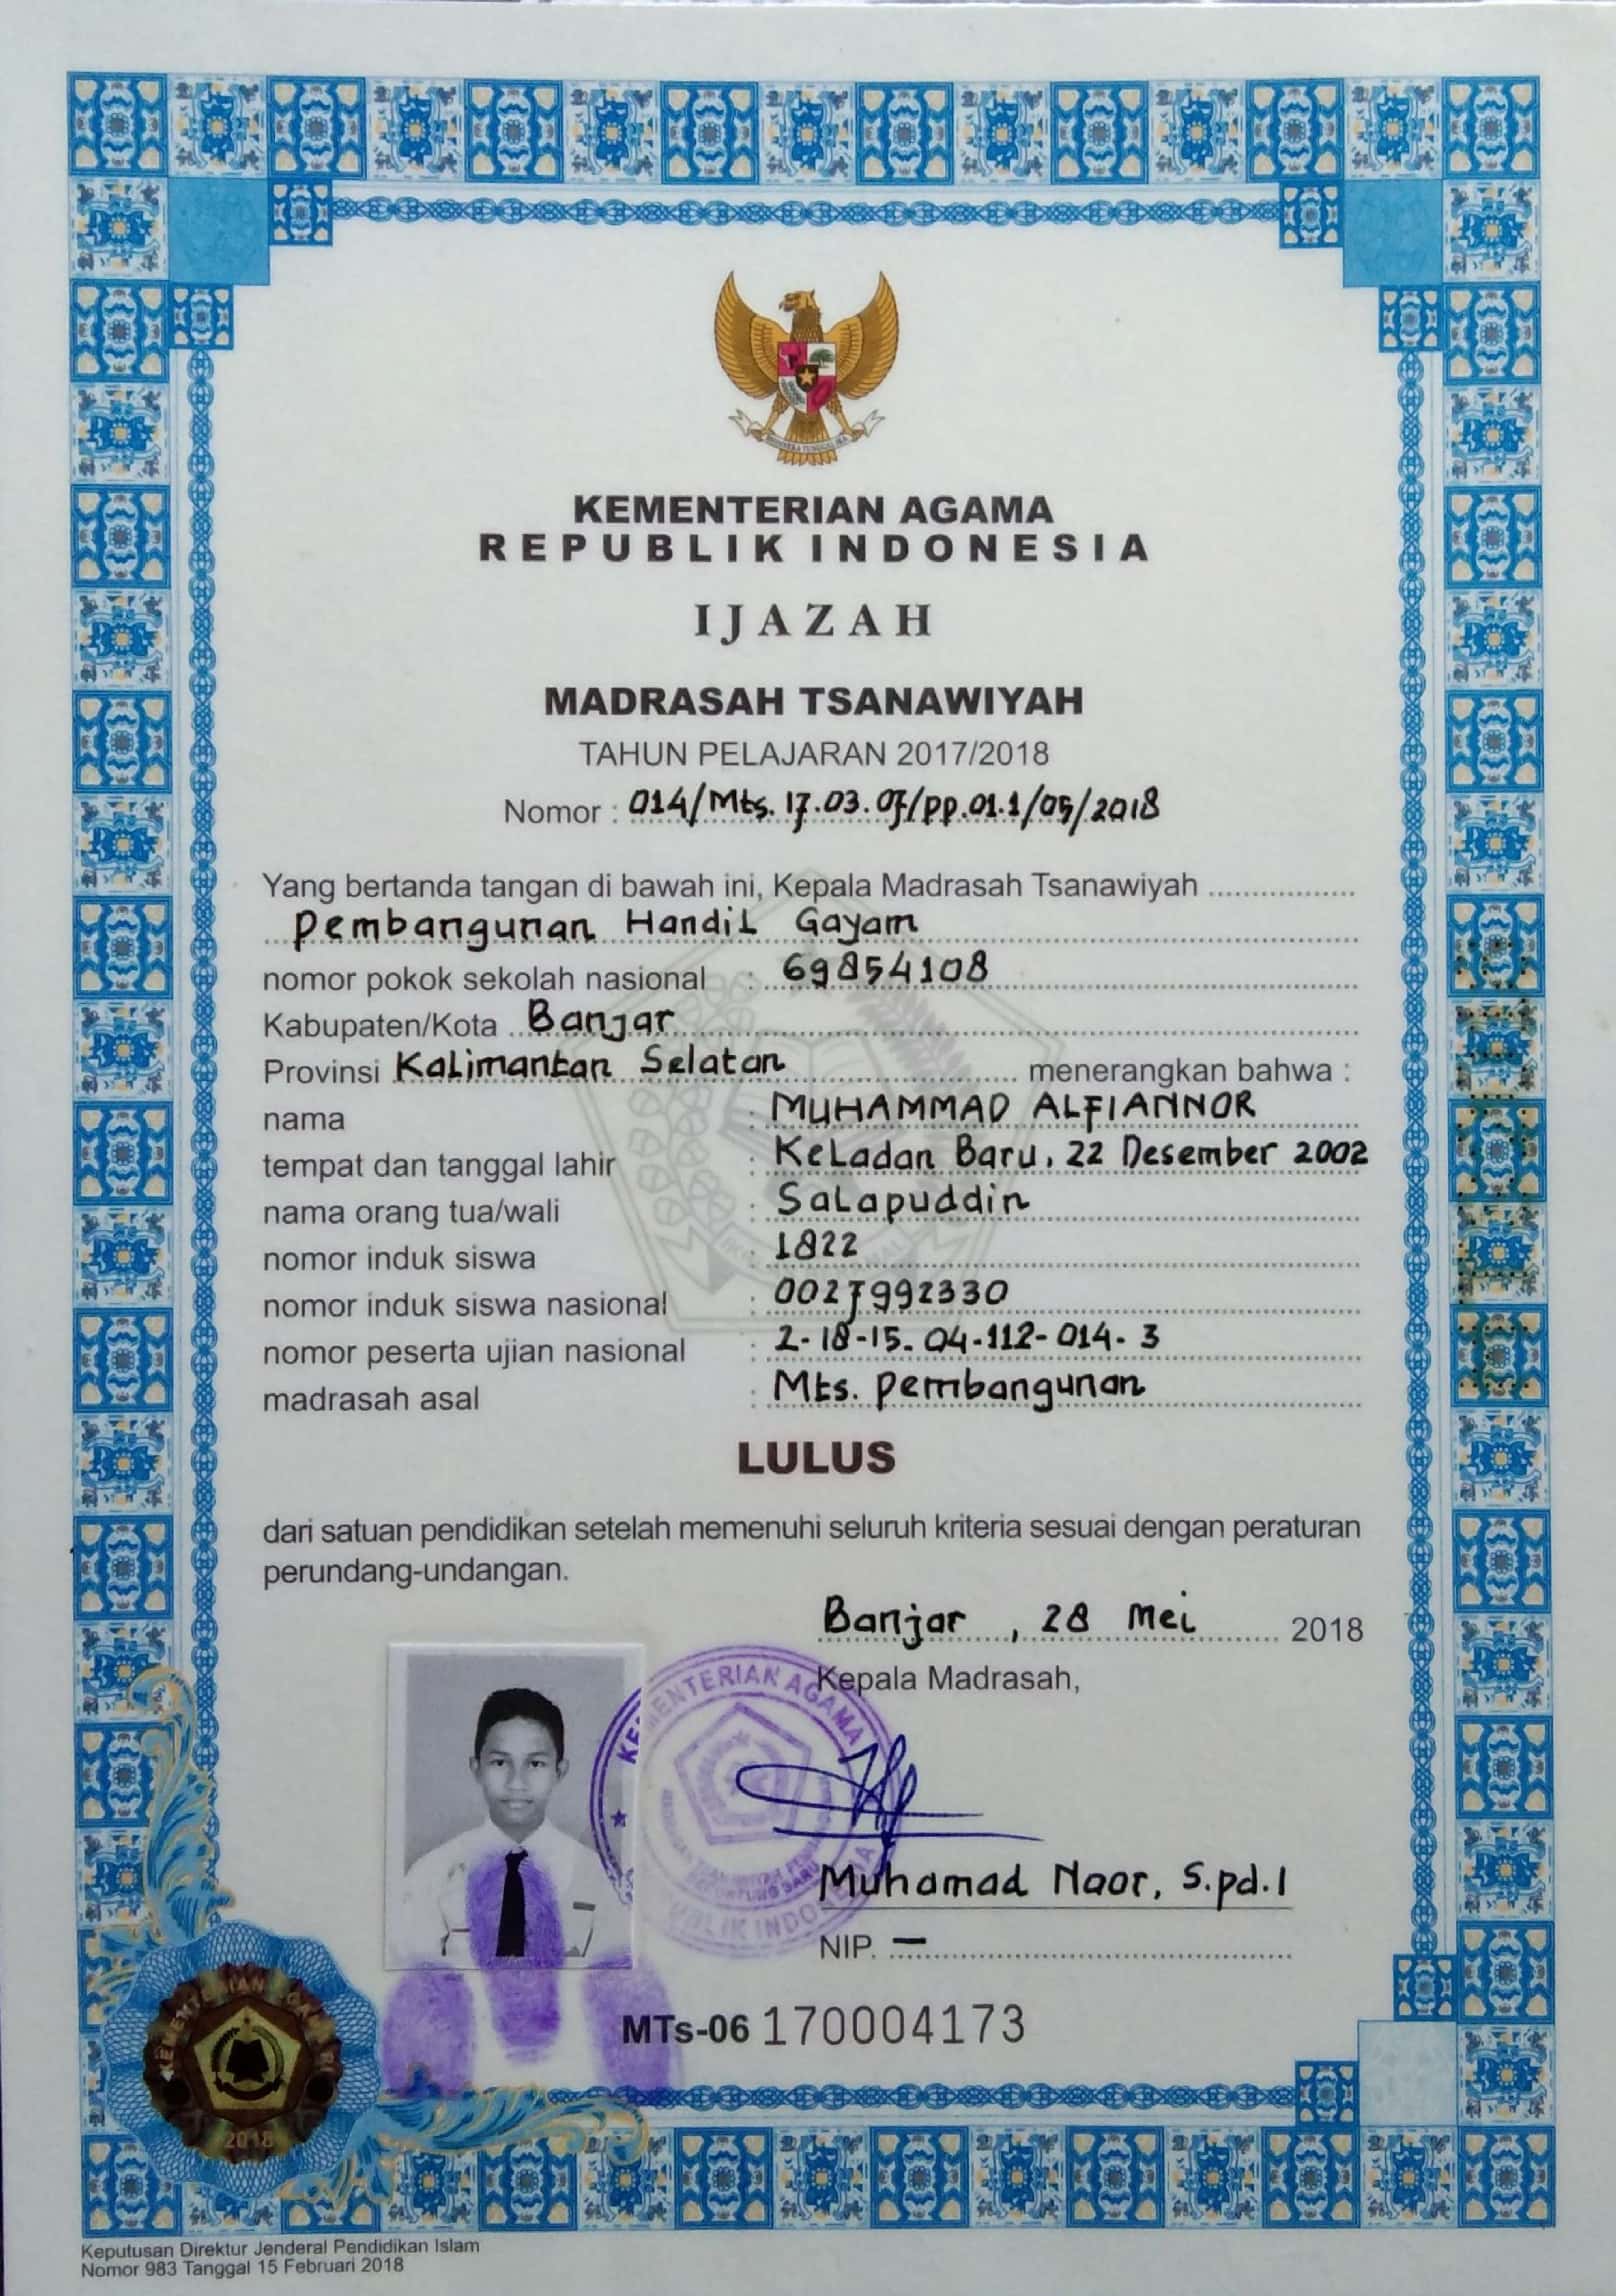 KEMENTERIAN AGAMA
REPUBLIK INDONESIA
IJAZAH
MADRASAH TSANAWIYAH
TAHUN PELAJARAN 2017/2018
Nomor : 014/Mts.17.03.07/PP.01.1/05/2018
Yang bertanda tangan di bawah ini, Kepala Madrasah Tsanawiyah
Pembangunan Handil Gayam
nomor pokok sekolah nasional : 69854108
Kabupaten/Kota Banjar
Provinsi Kalimantan Selatan menerangkan bahwa :
nama : MUHAMMAD ALFIANNOR
tempat dan tanggal lahir : Keladan Baru, 22 Desember 2002
nama orang tua/wali : Salapuddin
nomor induk siswa : 1822
nomor induk siswa nasional : 0027992330
nomor peserta ujian nasional : 2-18-15.04-112-014-3
madrasah asal : Mts. Pembangunan
LULUS
dari satuan pendidikan setelah memenuhi seluruh kriteria sesuai dengan peraturan
perundang-undangan.
Banjar, 28 Mei 2018
Kepala Madrasah,
KEMENTERIAN AGAMA
Muhamad Naor, S.pd.I
NIP. –
MTs-06 170004173
KEMENTERIAN AGAMA RI
2018
Keputusan Direktur Jenderal Pendidikan Islam
Nomor 983 Tanggal 15 Februari 2018